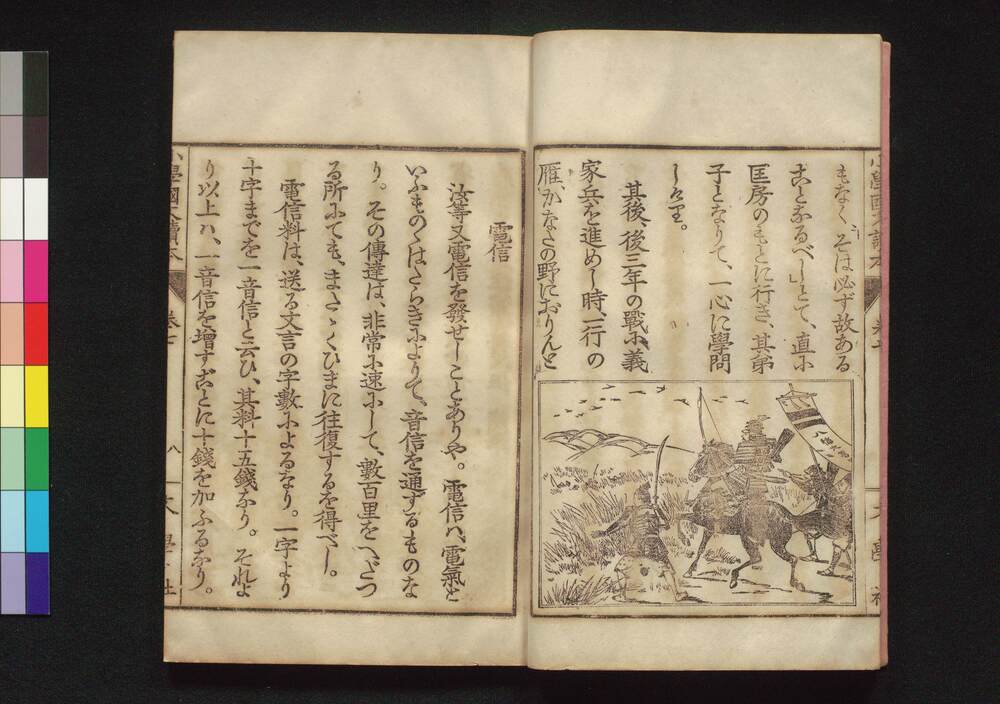 もなく、そは必ず故ある
ことなるべし」とて、直に
匡房のもとに行き、其弟
子となりて、一心に學問
しけり。
其後、後三年の戰に、義
家兵を進めし時、一行の
雁、かなたの野におりんと
電信
汝等又電信を發せしことありや。電信ハ、電氣と
いふものゝはたらきによりて、音信を通ずるものな
り。その傳達は、非常に速にして、數百里をへだつ
る所にても、またゝくひまに往復するを得べし。
電信料は、送る文言の字數によるなり。一字より
十字までを一音信と云ひ、其料十五錢なり。それよ
り以上ハ、一音信を増すごとに十錢を加ふるなり。
小學國文讀本
卷七
八
大學社